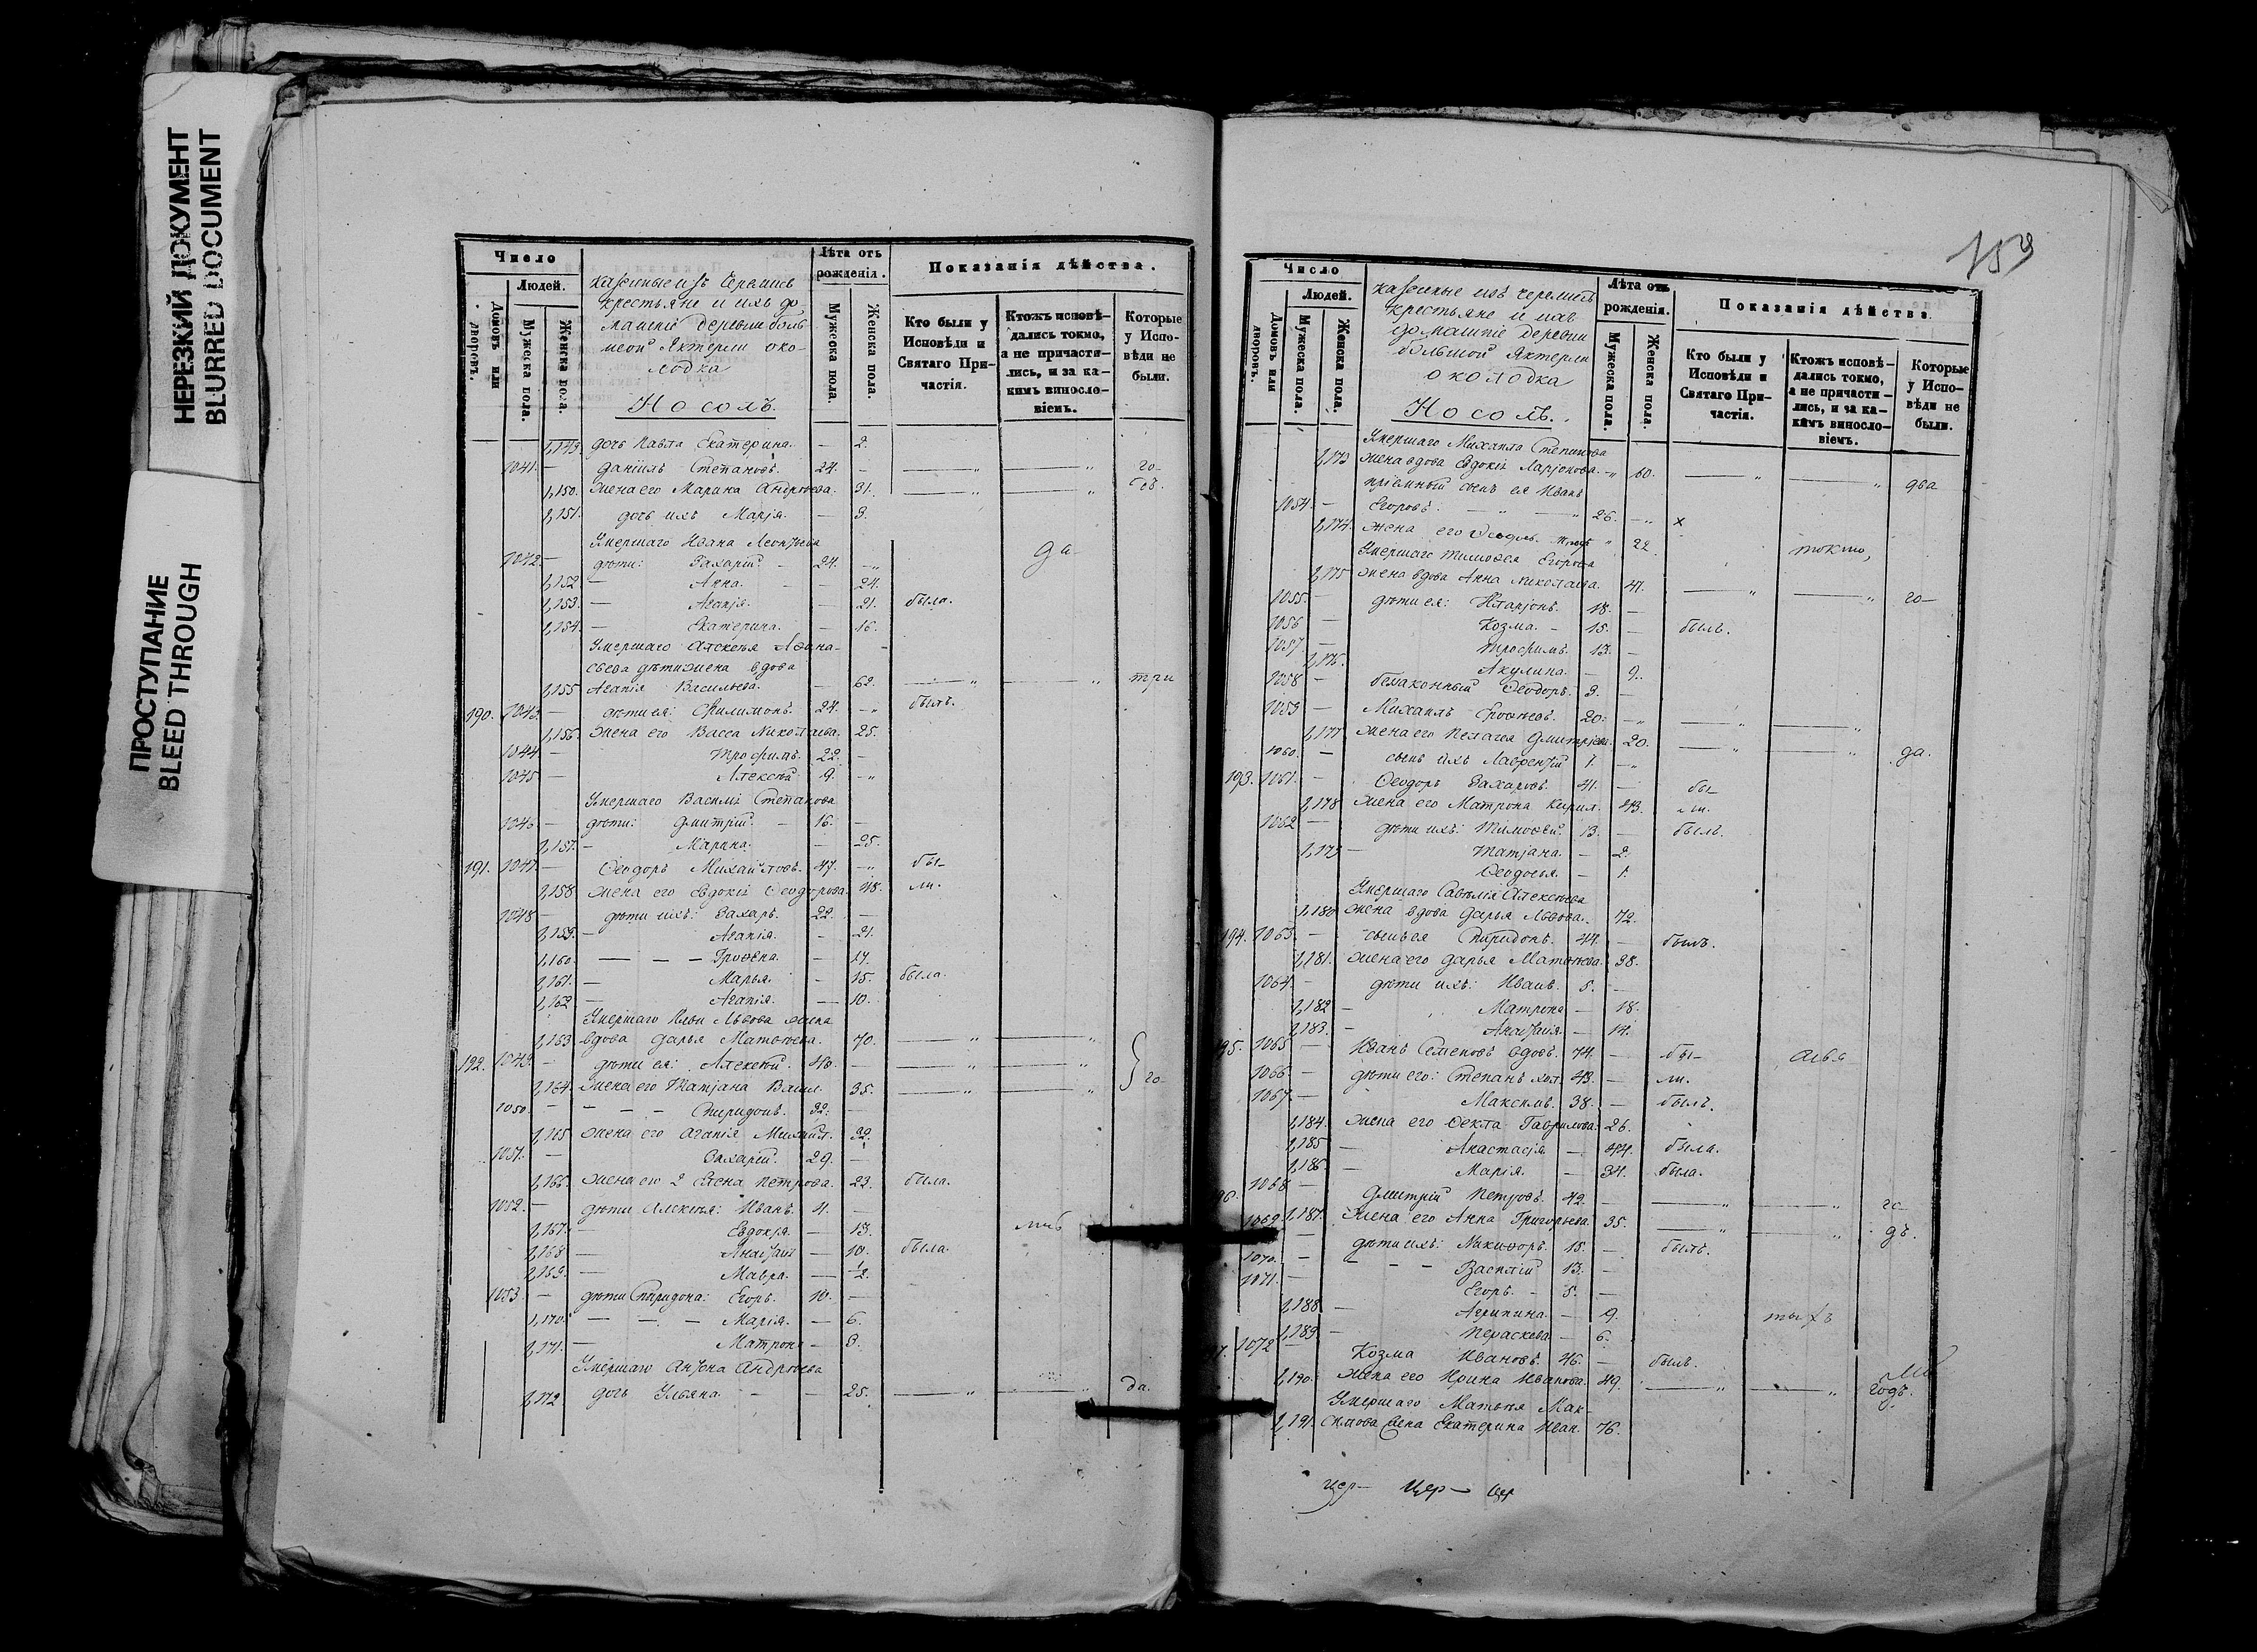 НЕРЕЗКИЙ ДОКУМЕНТ
BLURRED DOCUMENT
ПРОСТУПАНИЕ
BLEED THROUGH
Число
Людей.
Домовъ или дворовъ.
Мужеска пола.
Женска пола.
казенные изъ Черемисъ
крестьяне и ихъ до
машніе деревни боль
шой Яктерли око-
лодка
Носолъ.
Лѣта отъ рожденія.
Мужеска пола.
Женска пола.
Показанія дѣйства.
Кто были у Исповѣди и Святаго Причастія.
Ктожъ исповѣ-
дались токмо,
а не причасти-
лись, и за ка-
кимъ винносло-
віемъ.
Которые
у Испо-
вѣди не
были.
1,149. дочь Павла Екатерина. — 2.
1041. — Даніилъ Степановъ. 24. — го-
1,150. жена его Марина Андреева. 31. дъ.
1,151. дочь ихъ Марія. — 3.
Умершаго Ивана Леонтьева
1042. — дѣти: Захарій — 24. да-
1,152 — Анна. — 24.
1,153. — Агапія. — 21. была.
1,154. — Екатерина. — 16.
Умершаго Алексѣя Афона-
сьева дѣти жена вдова
1,155 Агапія Васильева. — 62. три
190. 1043. — дѣти ея: Филимонъ. 24. былъ.
1,156. жена его Васса Николаева. 25.
1044 — Трофимъ. 22. —
1045 — Алексѣй 9.
Умершаго Василія Степанова
1046 — дѣти: Дмитрій. — 16. —
1,157. — Марина. — 25.
191. 1047. — Феодоръ Михайловъ. 47. бы-
1,158 жена его Евдокія Феодорова. 48. ли.
1048 — дѣти ихъ: Захаръ. 22. —
1,159. — Агапія. — 21.
1,160. — Ѳрофена. — 17.
1,161. — Марья. — 15. была.
1,162 — Агапія. — 10.
Умершаго Ильи Львова жена
1,163 вдова Дарья Матвѣева. 70.
192. 1049. — дѣти ея: Алексѣй. 40. —
1,164. жена его Татьяна Васил. 35. го-
1050. — Спиридонъ. 32. —
1,165 жена его Агапія Михайл. 32.
1051. — Захарій. 29. —
1,166. жена его 2 Елена Петрова. 23. была.
1052. — дѣти Алексѣя: Иванъ. 4. —
1,167. — Евдокія. — 13.
1,168 — — 10. была.
1,169. — Мавра. — ½.
1053. — дѣти Спиридона: Егоръ. 10. —
1,170. — Марія. — 6.
1,171. — Матрона — 3.
Умершаго Антона Андреева
1,172 дочь Ульяна. — 25. да.
159
Число
Людей.
Домовъ или дворовъ.
Мужеска пола.
Женска пола.
казенные изъ черемисъ
крестьяне и ихъ
домашніе деревни
большой Яктерли
околодка
Носолъ.
Лѣта отъ рожденія.
Мужеска пола.
Женска пола.
Показанія дѣйства.
Кто были у
Исповѣди и
Святаго При-
частія.
Ктожъ исповѣ-
дались токмо,
а не причасти-
лись, и за ка-
кимъ винносло-
віемъ.
Которые
у Испо-
вѣди не
были.
Умершаго Михаила Степанова
1,173 жена вдова Евдокія Ларіонова. 60. два
пріемный сынъ ея Иванъ
1054. — Егоровъ. 26. x
1,174. жена его 22. токмо,
Умершаго Тимофея Егорова
1,175 жена вдова Анна Николаева. 47. го-
1055. — дѣти ея: Иларіонъ. 18. —
1056 — Козма. — 15. — былъ.
1057 — Трофимъ. 13. —
1,176. Акулина. — 9.
1058 — безаконный Феодоръ. 3. —
1059 — Михаилъ Ерофѣевъ. 20.
1,177. жена его Пелагея Дмитріева. 20.
1060. — сынъ ихъ Лаврентій 1. да.
193. 1061. — Феодоръ Захаровъ. 41. — бы-
1,178 жена его Матрона Кирил. 43. ли.
1062 — дѣти ихъ: Тимофей. 13. — былъ.
1,179 — Татьяна. — 2.
Феодосья. — 1.
Умершаго Савелія Алексѣева
1,180 жена вдова Дарья Львова. 72.
194. 1063. — сынъ ея Спиридонъ. 44. — былъ.
1,181. жена его Дарья Матвѣева. 38.
1064. — дѣти ихъ: Иванъ. 5. —
1,182 — Матрона — 18.
1,183. — — 14.
195. 1065 — Иванъ Семеновъ вдовъ. 74. — бы-
1066. — дѣти его: Степанъ хол. 43. — ли.
1067. — Максимъ. 38. — былъ.
1,184. жена его Фекла Гаврилова. 26.
1,185 — Анастасія — 44. была.
1,186 — Марія. — 34. была.
1068 — Дмитрій Петровъ. 42. — го-
1069 1,187. жена его Анна Григорьева. 35. дъ.
— дѣти ихъ: Никифоръ. 15. — былъ.
1070. — Василій 13. —
1071. — Егоръ. — 5. —
1,188 — Агрипина. — 9.
1,189. — Пераскева — 6.
1072 — Козма Ивановъ. 46. — былъ.
1,190. жена его Ирина Иванова. 49. годъ.
Умершаго Матвѣя Мак-
1,191. симова жена Екатерина Иван. 76.
цер— цер— цер